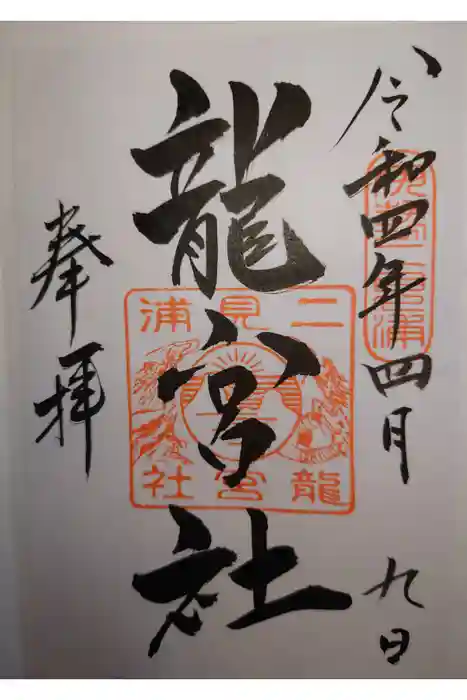 令和四年四月九日
龍宮社
奉拝
二見浦
龍宮社